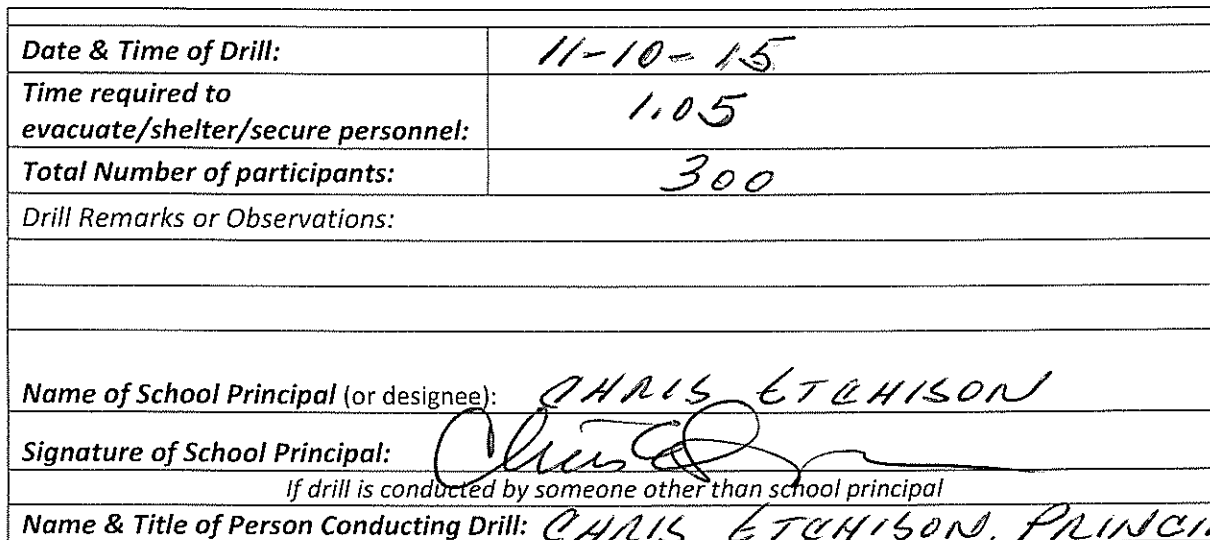 Date & Time of Drill: 11-10-15
Time required to
evacuate/shelter/secure personnel: 1.05
Total Number of participants: 300
Drill Remarks or Observations:
Name of School Principal (or designee): CHRIS ETCHISON
Signature of School Principal:
If drill is conducted by someone other than school principal
Name & Title of Person Conducting Drill: CHRIS ETCHISON, PRINCI